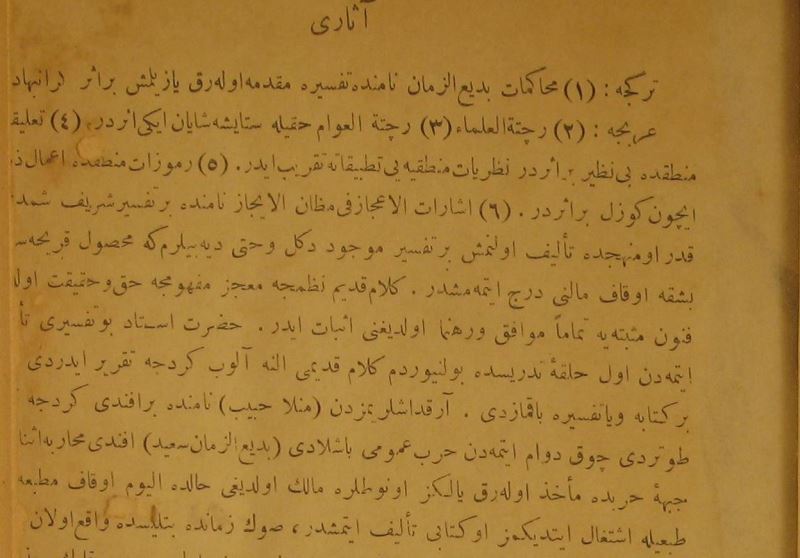 آثاری
ترکجه : (١) محاکمات بدیع‌الزمان نامنده تفسیره مقدمه اوله‌رق یازیلمش براثر
عربجه : (٢) رچتةالعلماء (٣) رچتة العوام حقیله ستایشه شایان ایکی اثردر. (٤)
منطقده بی نظیر براثردر نظریات منطقیه‌یی تطبیقاته تقریب ایدر. (٥) رموزات منطقده اعمال
ایچون کوزل براثردر . (٦) اشارات الاعجاز فی مظان الایجاز نامنده بر تفسیر شریف
قدر اومنهجده تألیف اولنمش بر تفسیر موجود دکل وحتی دیه بیلرم که محصول
بشقه اوقاف مالنی درج ایتمه‌مشدر . کلام قدیم نظمجه معجز مفهومجه حق وحقیقت
فنون مثبته‌یه تماماً موافق ورهنما اولدیغنی اثبات ایدر . حضرت استاد بوتفسیری
ایتمه‌دن اول حلقهٔ تدریسده بولنیوردم کلام قدیمی النه آلوب کردجه تقریر ایدردی
بر کتابه ویاتفسیره باقمازدی . آرقداشلریمزدن (منلا حبیب) نامنده برافندی کردجه
طوتردی چوق دوام ایتمه‌دن حرب عمومی باشلادی (بدیع‌الزمان سعید) افندی محاربه
جبههٔ حربده مأخذ اوله‌رق یالکز اونوطلره مالك اولدیغی حالده الیوم اوقاف
طبعیله اشتغال ایتدیکمز اوکتابی تألیف ایتمشدر، صوك زمانده بتلیسده واقع اولان